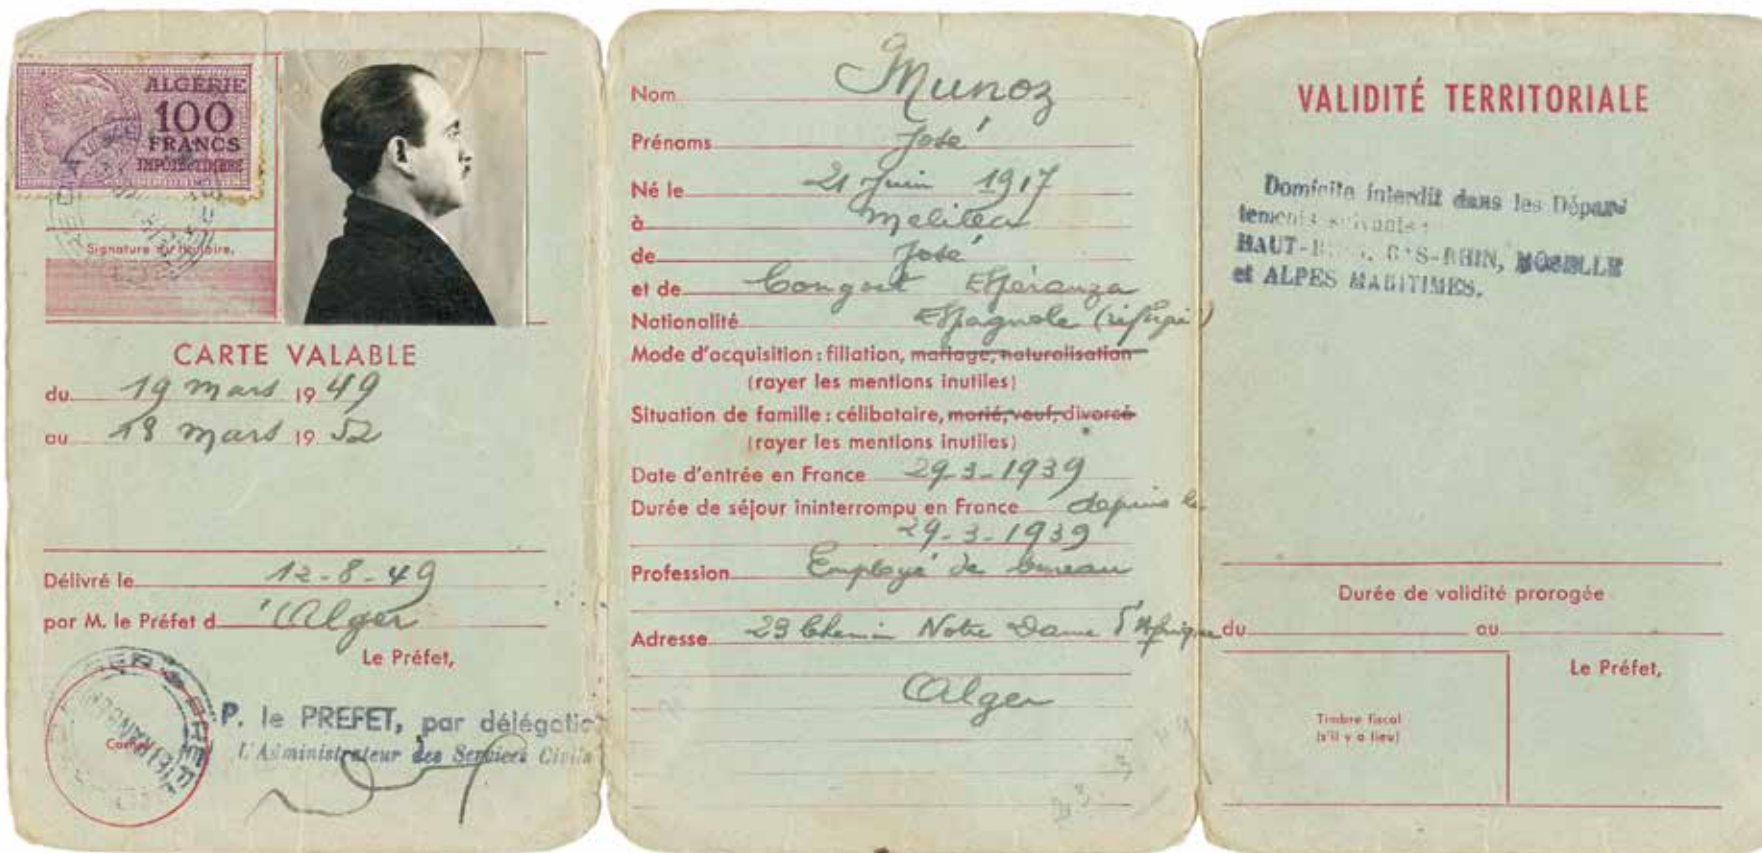 ALGERIE
100
FRANCS
IMPÔT DU TIMBRE
Signature du titulaire,
CARTE VALABLE
du 19 mars 1949
au 18 mars 1952
Délivré le 12-8-49
par M. le Préfet d'Alger
Le Préfet,
Cachet
P. le PREFET, par délégatio
L'Administrateur des Services Civils
Nom Munoz
Prénoms José
Né le 21 Juin 1917
à Melilea
de José
et de Congost Espéranza
Nationalité Espagnole (réfugié)
Mode d'acquisition : filiation, mariage, naturalisation
(rayer les mentions inutiles)
Situation de famille : célibataire, marié, veuf, divorcé
(rayer les mentions inutiles)
Date d'entrée en France 29-3-1939
Durée de séjour ininterrompu en France depuis le
29-3-1939
Profession Employé de bureau
Adresse 29 Chemin Notre Dame d'Afrique
Alger
VALIDITÉ TERRITORIALE
Domicile interdit dans les Dépar
tements suivants :
HAUT-RHIN, BAS-RHIN, MOSELLE
et ALPES MARITIMES.
Durée de validité prorogée
du au
Le Préfet,
Timbre fiscal
(s'il y a lieu)